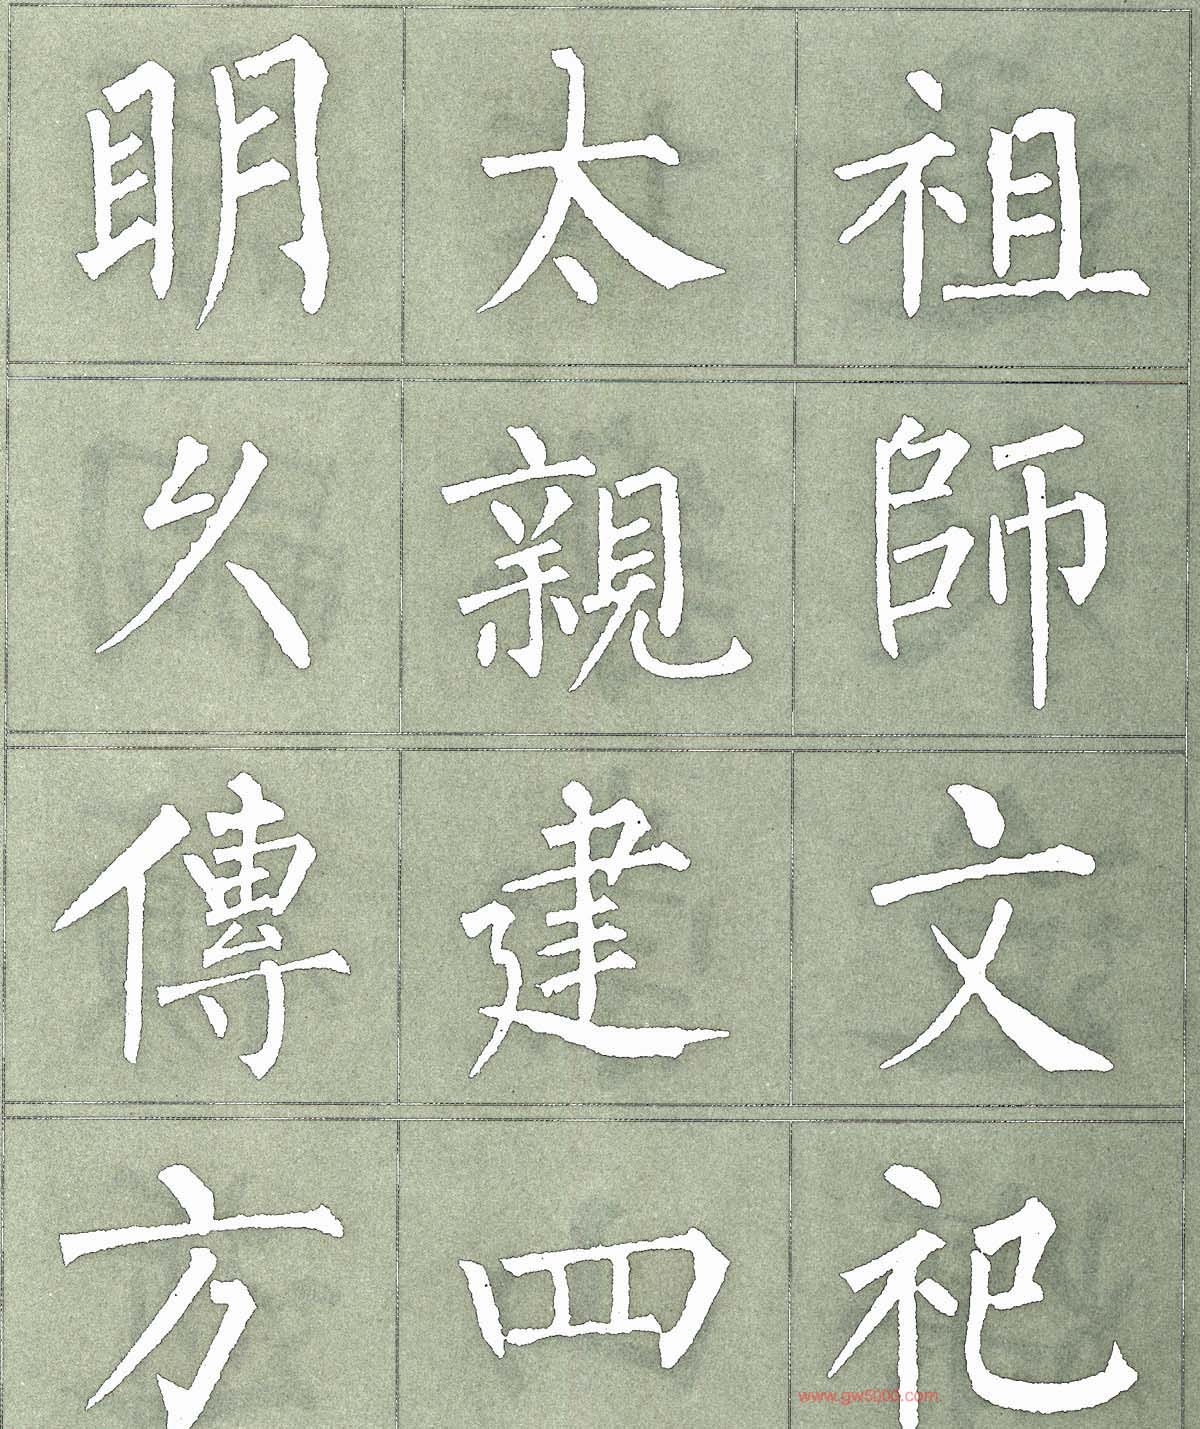 祖師文祀
太親建四
明久傳方
www.gw5000.com